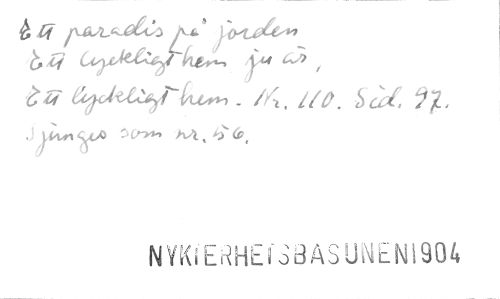 Ett paradis på jorden
Ett lyckligt hem ju är,
Ett lyckligt hem. Nr. 110. Sid. 97.
Sjunges som nr. 56.
NYKTERHETSBASUNEN1904